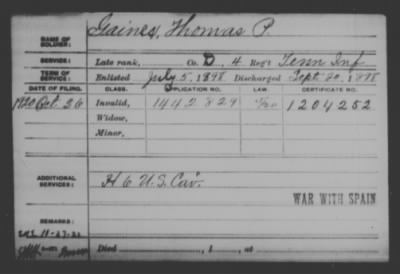 NAME OF SOLDIER: Gaines, Thomas P.
SERVICE: Late rank, Co. D, 4 Reg't Tenn Inf
TERM OF SERVICE: Enlisted July 5, 1898. Discharged Sept. 20, 1898
DATE OF FILING. CLASS. APPLICATION NO. LAW. CERTIFICATE NO.
1920 Oct. 26 Invalid, 1442829 1204252
Widow,
Minor,
ADDITIONAL SERVICES: H 6 U.S. Cav.
WAR WITH SPAIN
REMARKS:
11-27-21
Died , 1 , at